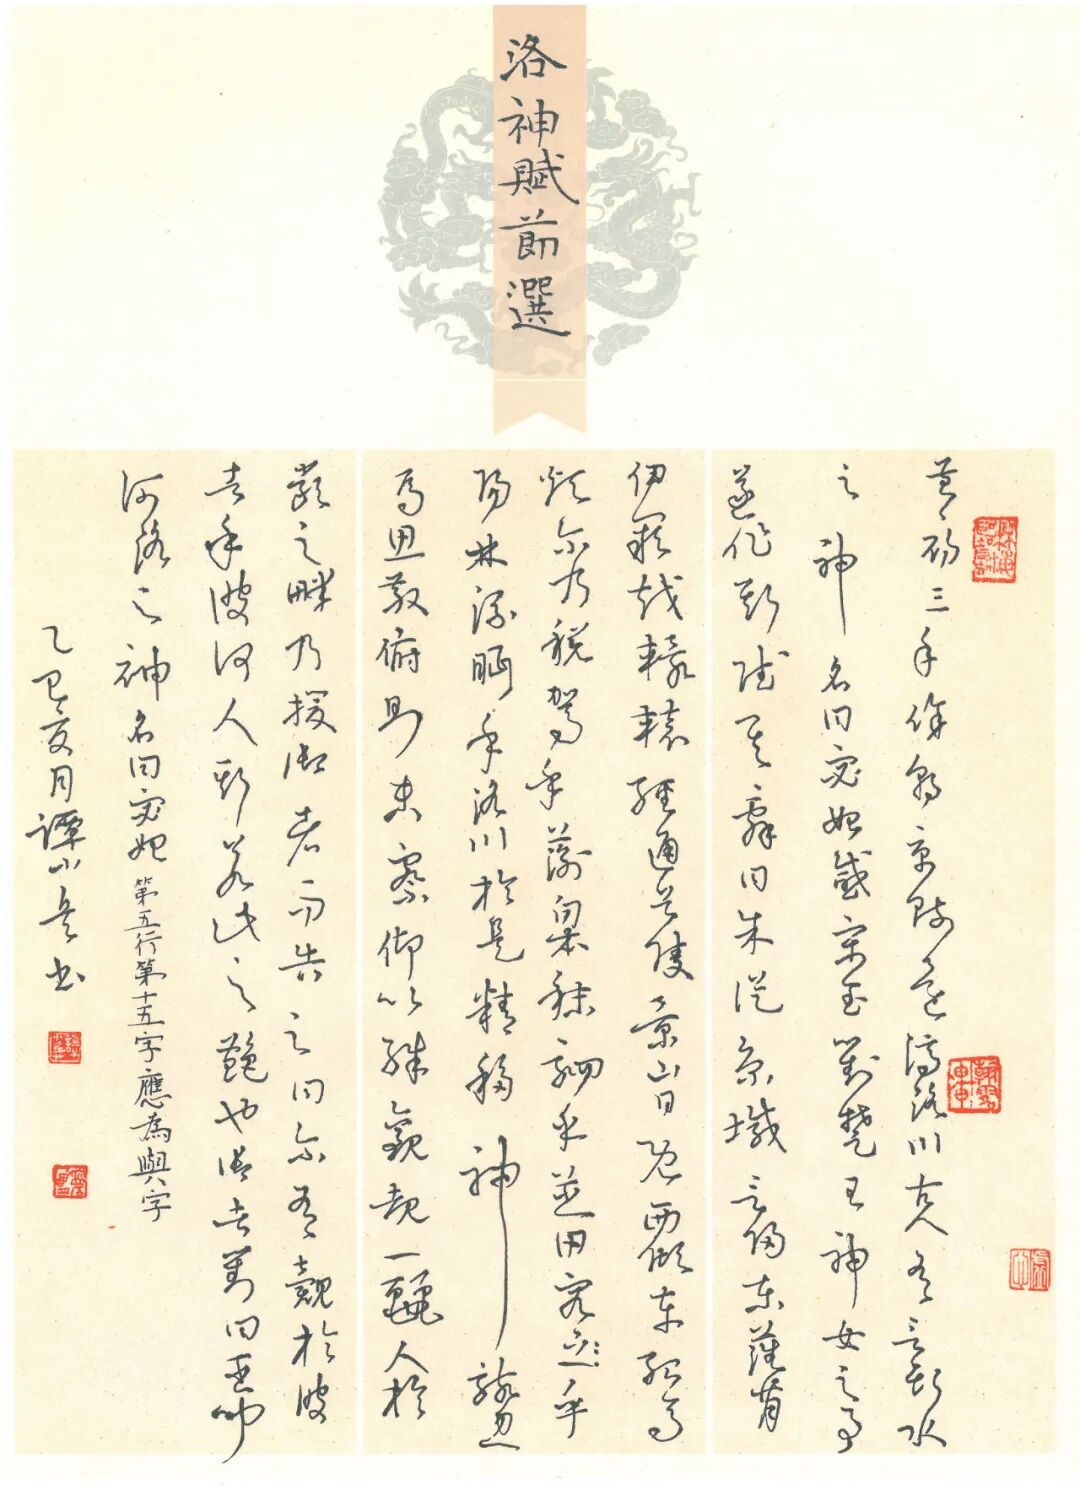 洛神賦節選
黃初三年余朝京師還濟洛川古人有言斯水
之神名曰宓妃感宋玉對楚王神女之事
遂作斯賦其辭曰余從京域言歸東藩背
伊闕越轘轅經通谷陵景山日既西傾車殆馬
煩爾乃稅駕乎蘅皋秣駟乎芝田容乎
陽林流眄乎洛川於是精移神駭忽
焉思散俯則未察仰以殊觀覩一麗人於
巖之畔乃援御者而告之曰爾有覿於彼
者乎彼何人斯若此之艷也御者對曰臣聞
河洛之神名曰宓妃 第五行第十五字應為與字
乙巳夏月譚小兵書